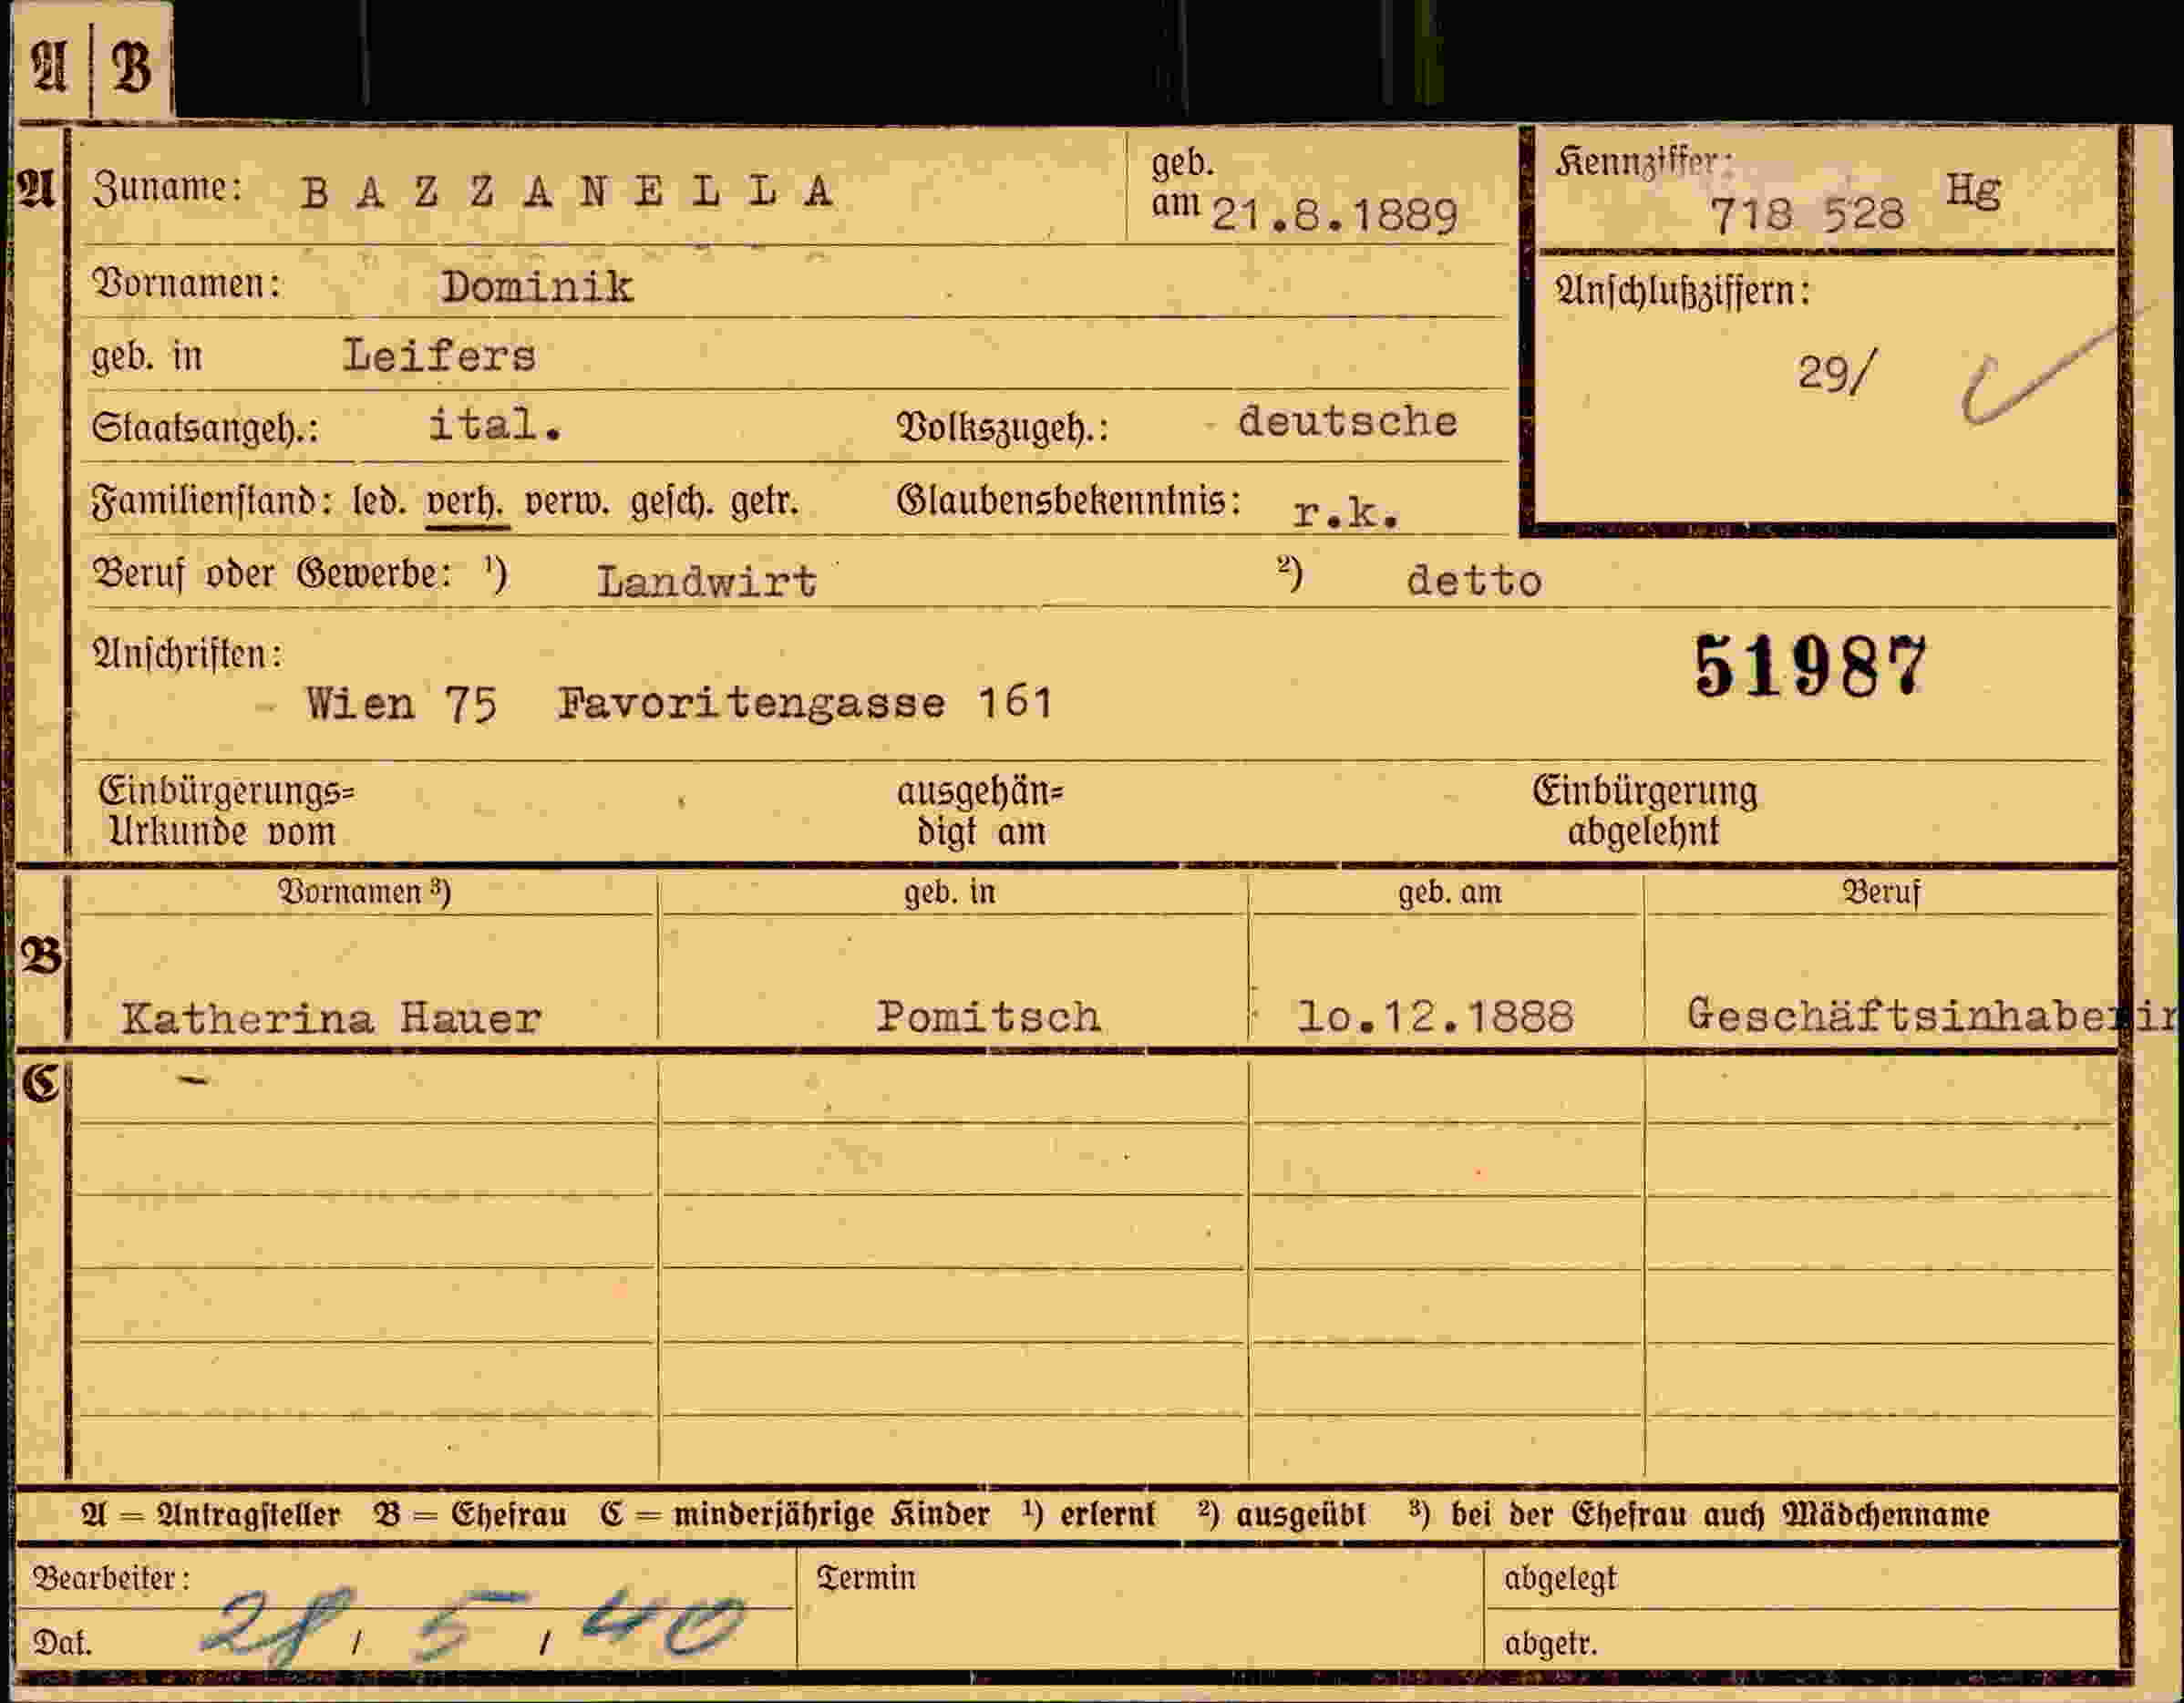 A B
A Zuname: BAZZANELLA geb. am 21.8.1889 Kennziffer: 718 528 Hg
Vornamen: Dominik Anschlußziffern:
geb. in Leifers 29/
Staatsangeh.: ital. Volkszugeh.: deutsche
Familienstand: led. verh. verw. gesch. getr. Glaubensbekenntnis: r.k.
Beruf oder Gewerbe: ¹) Landwirt ²) detto
Anschriften: 51987
Wien 75 Favoritengasse 161
Einbürgerungs= ausgehän= Einbürgerung
Urkunde vom digt am abgelehnt
Vornamen ³) geb. in geb. am Beruf
B
Katherina Hauer Pomitsch lo.12.1888 Geschäftsinhaberin
C –
A = Antragsteller B = Ehefrau C = minderjährige Kinder ¹) erlernt ²) ausgeübt ³) bei der Ehefrau auch Mädchenname
Bearbeiter: Termin abgelegt
Dat. 28/5/40 abgetr.